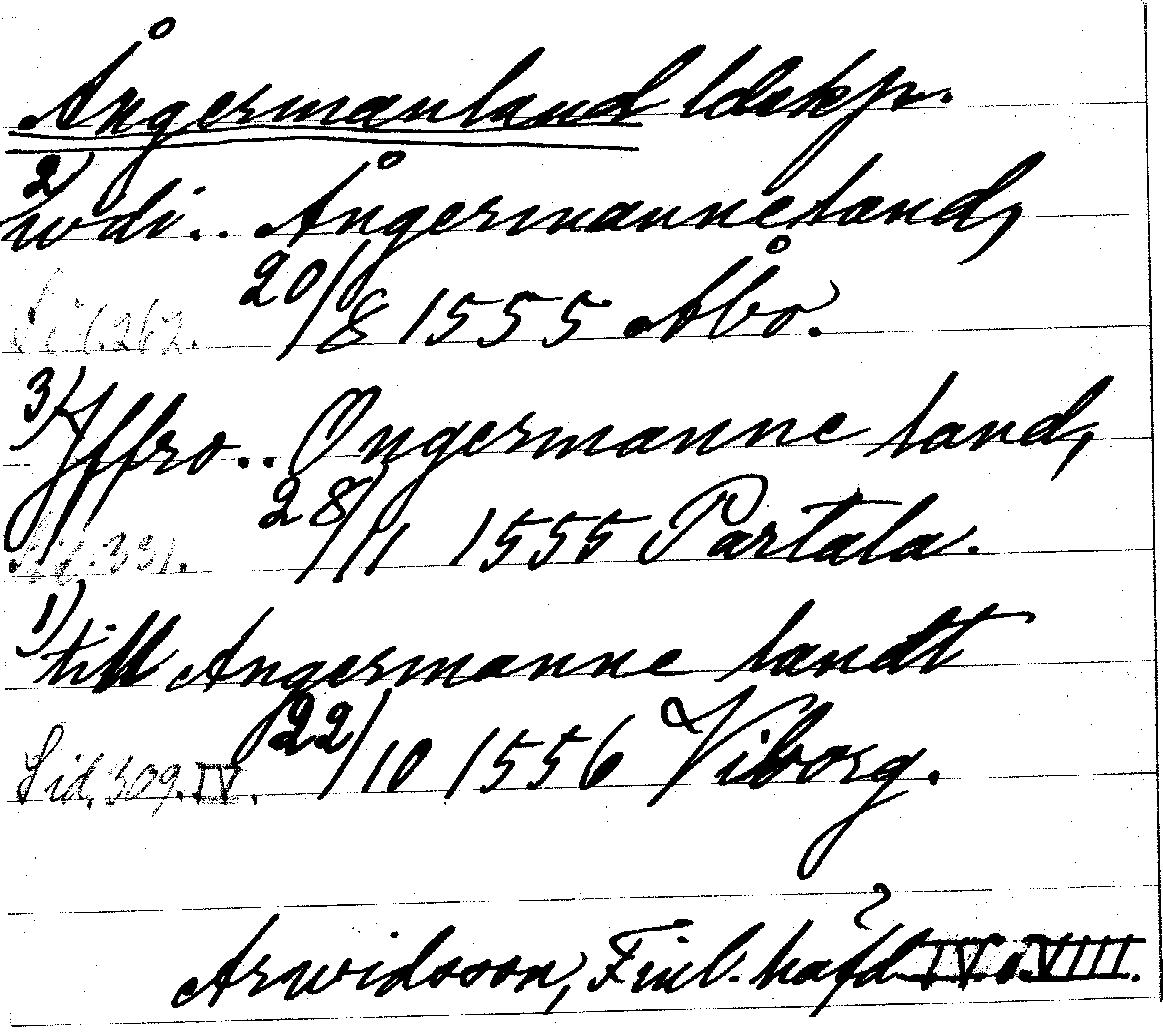 Ångermanland ldskp.
2) udi.. Ångermanneland,
Sid. 262. 20/8 1555 Åbo.
3) Iffro.. Ongermanne land,
Sid. 391. 28/11 1555 Partala.
1) till Angermanne landt
Sid. 309. IV. 22/10 1556 Viborg.
Arwidsson, Finl. häfd IV o. VIII.